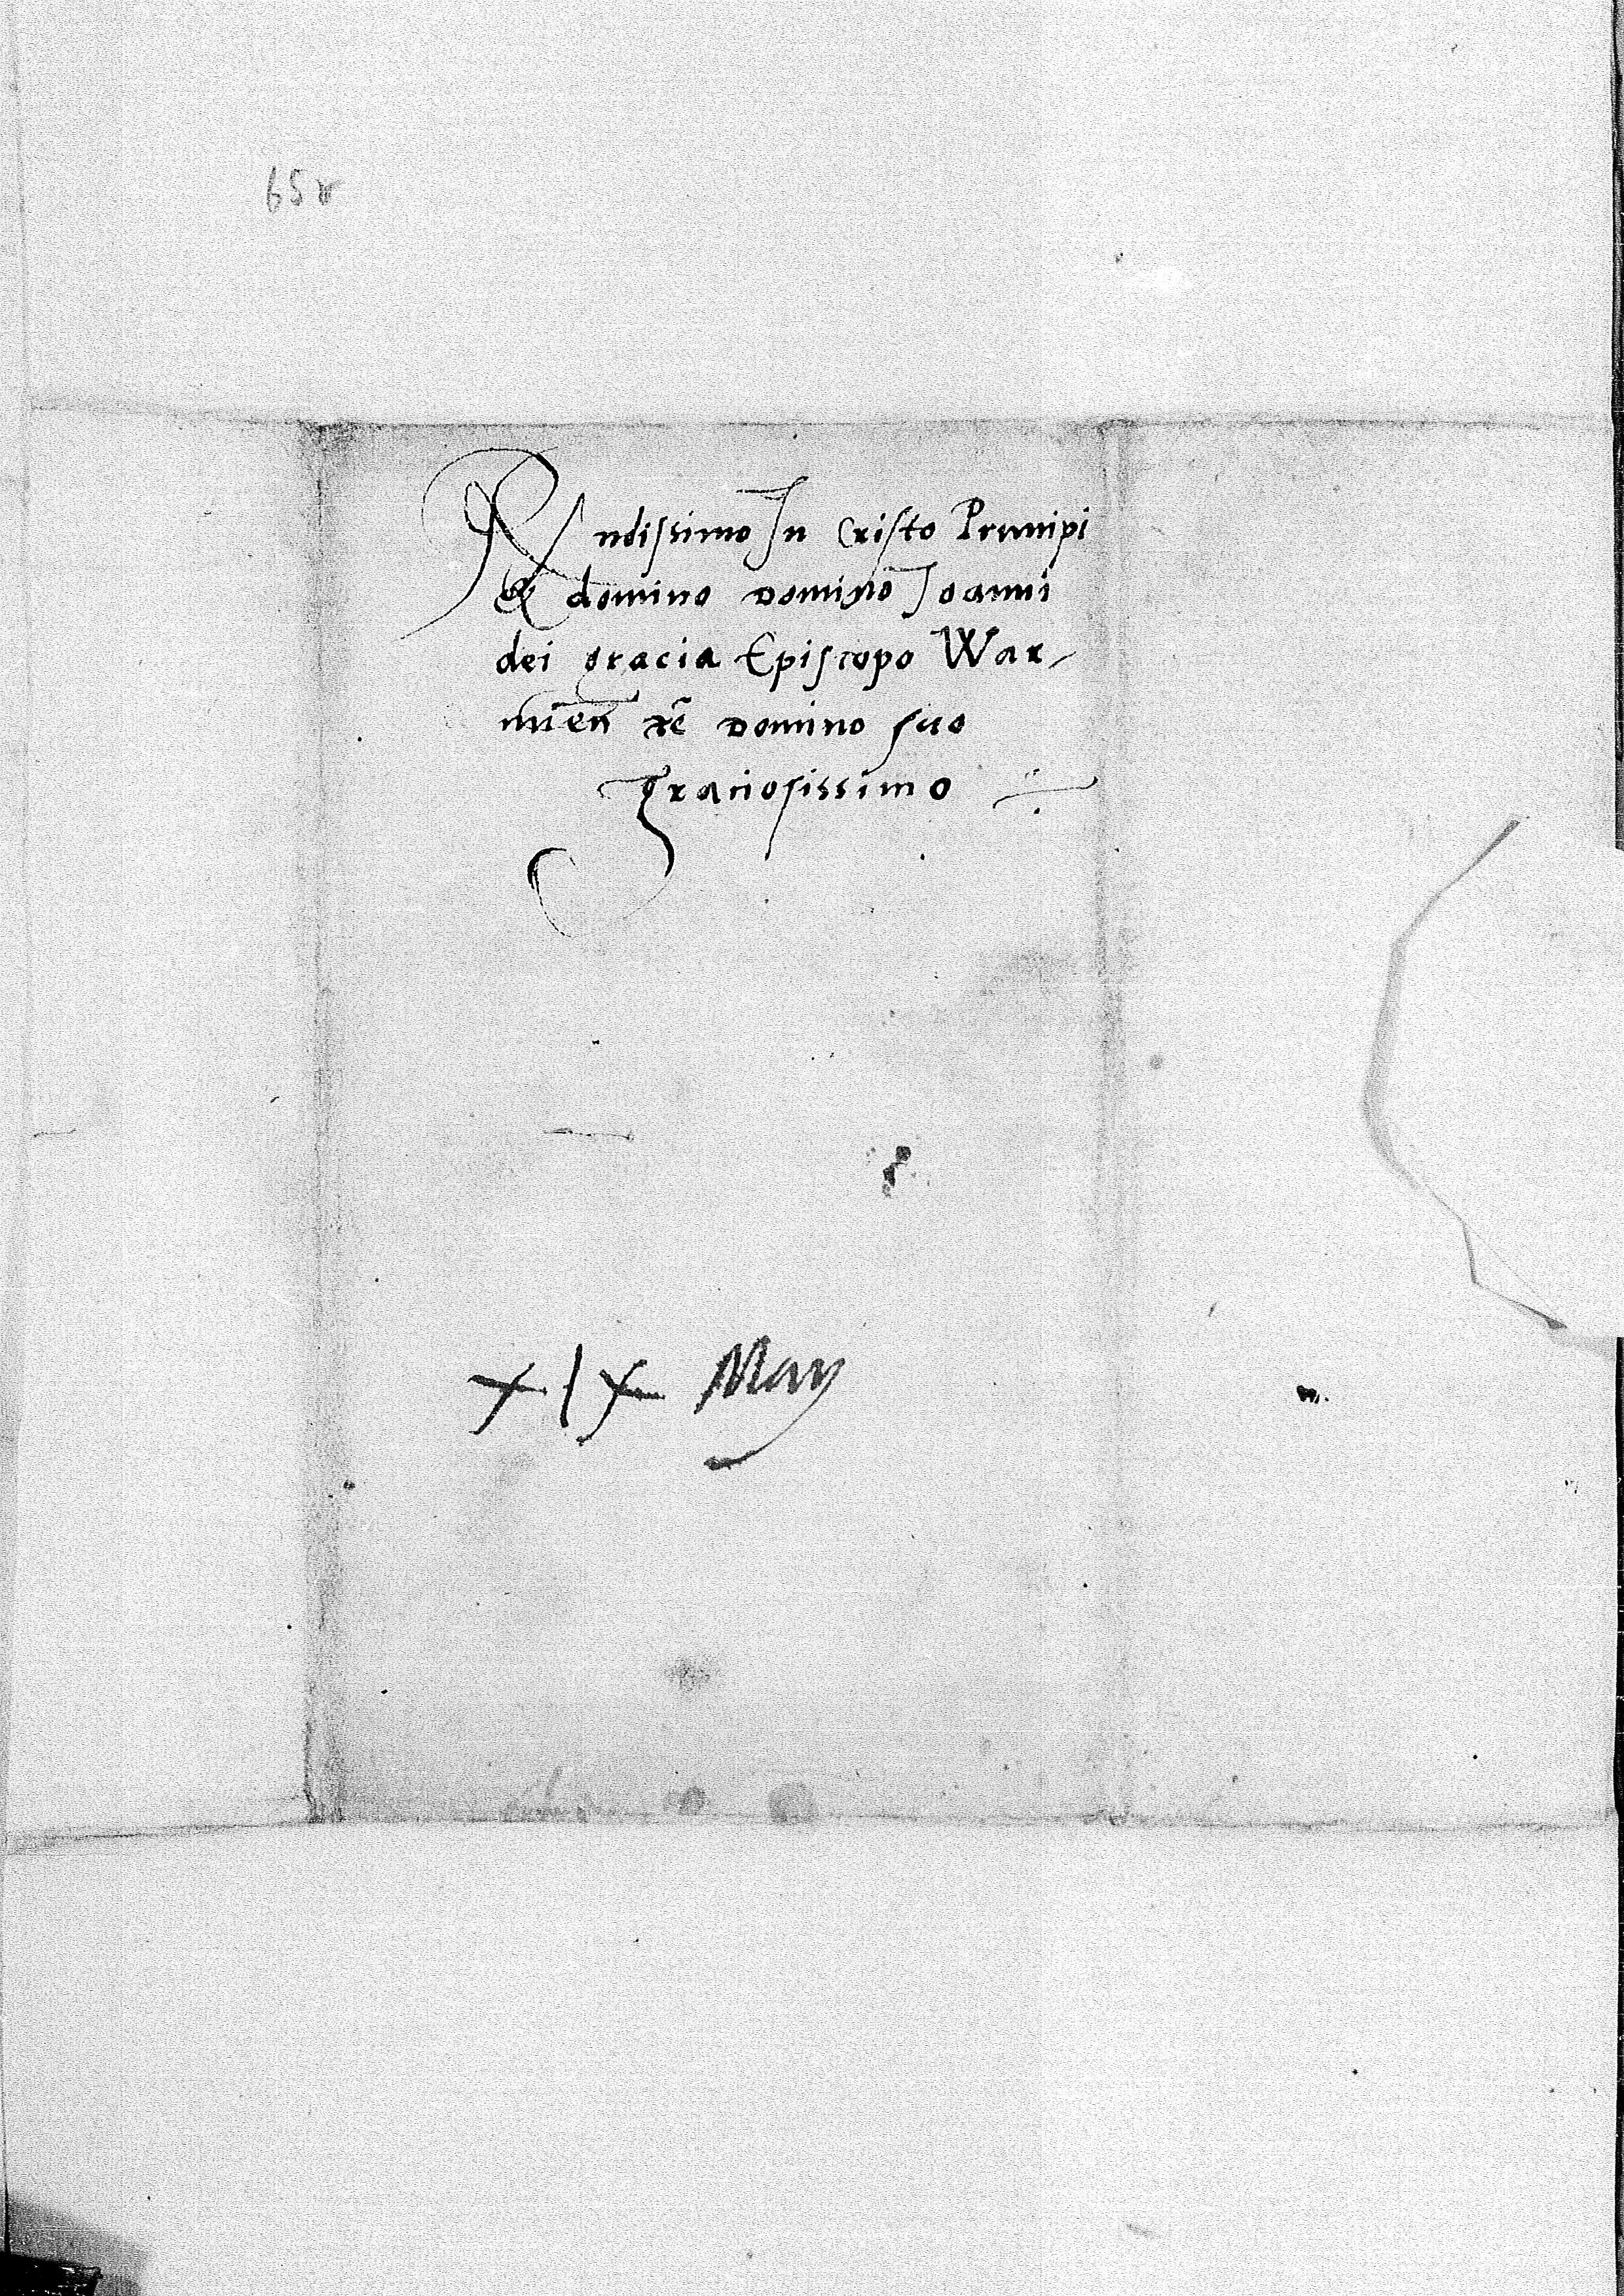 65v
Rndissimo In Cristo Principi
& domino domino Joanni
dei gracia Episcopo War-
mien̄ rē domino suo
graciosissimo
XIX Maij